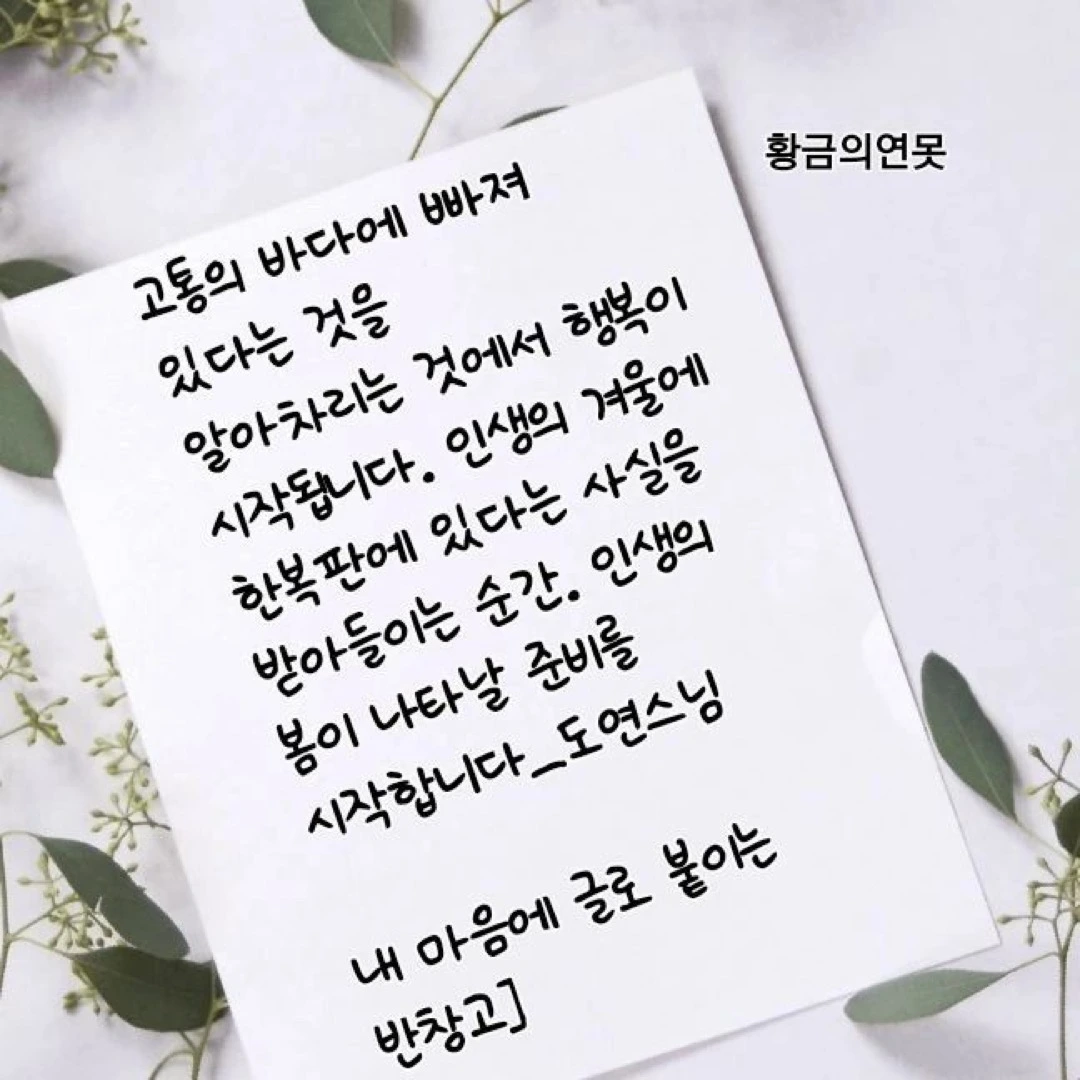 황금의연못
고통의 바다에 빠져
있다는 것을
알아차리는 것에서 행복이
시작됩니다. 인생의 겨울에
한복판에 있다는 사실을
받아들이는 순간. 인생의
봄이 나타날 준비를
시작합니다_도연스님
내 마음에 글로 붙이는
반창고]